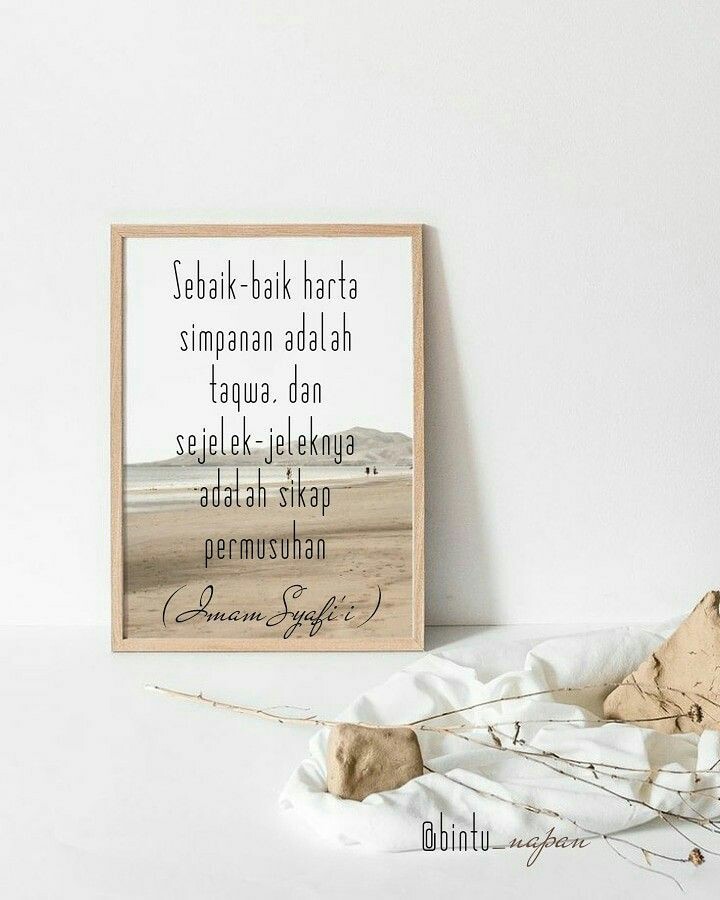 Sebaik-baik harta
simpanan adalah
taqwa, dan
sejelek-jeleknya
adalah sikap
permusuhan
(Imam Syafi'i)
@bintu_napan